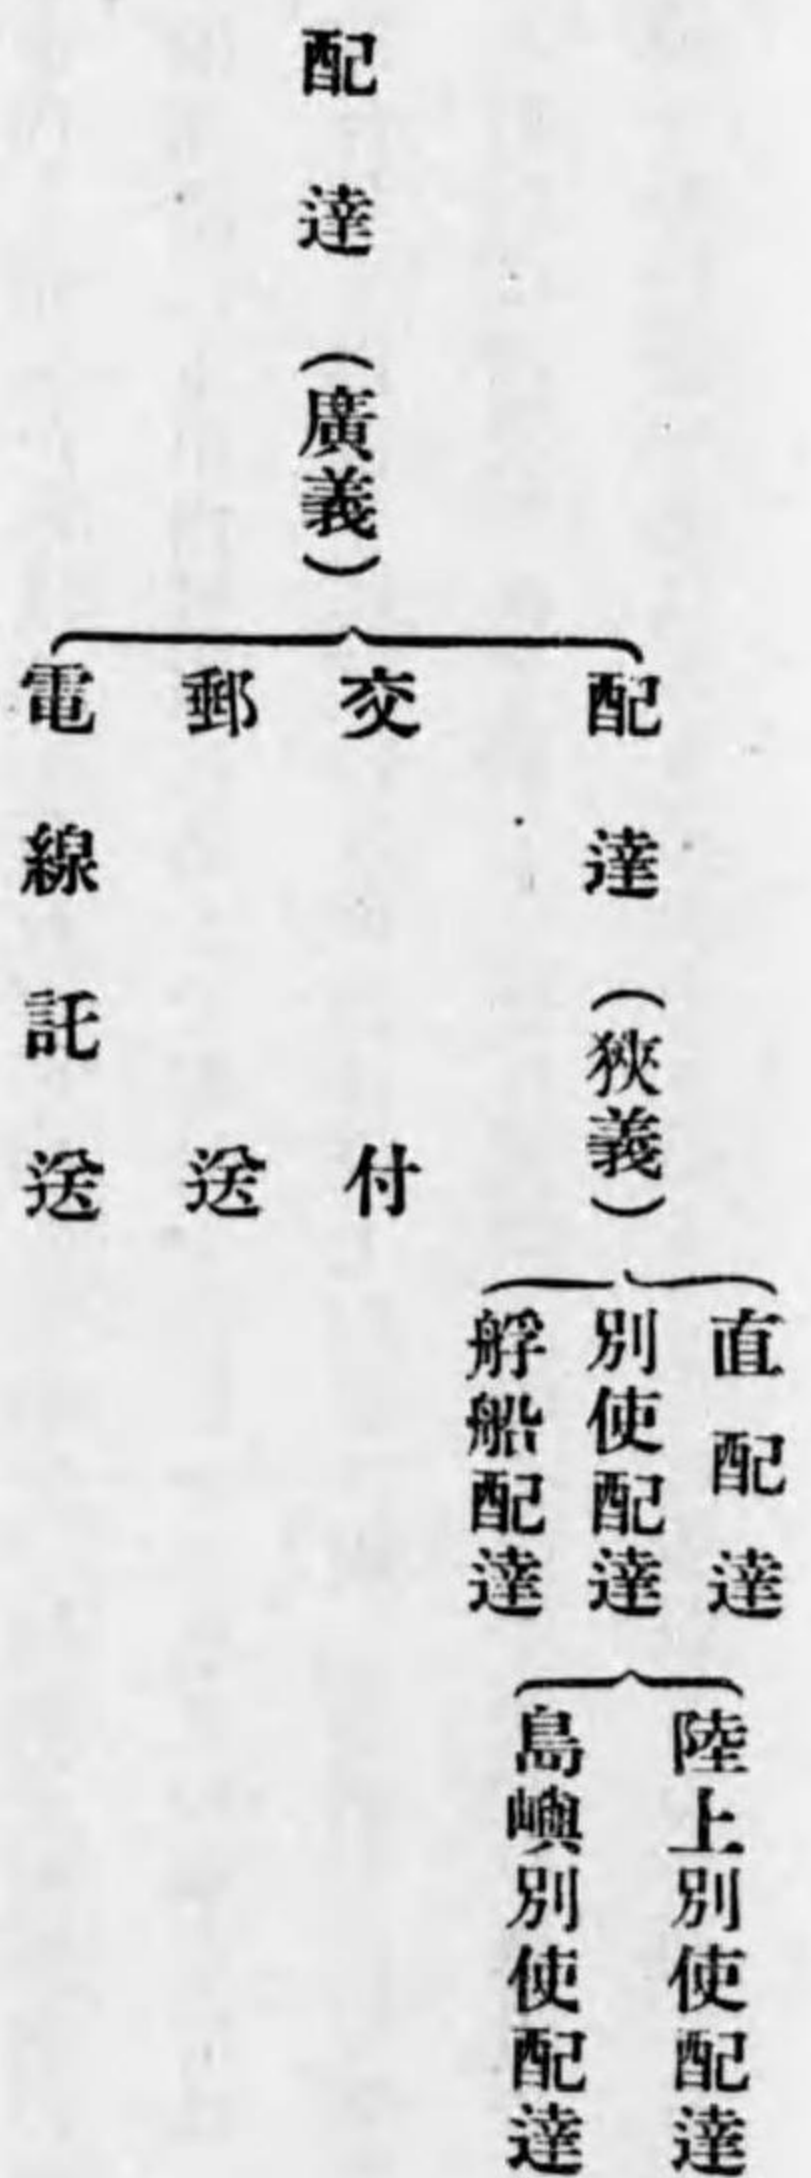 配達(廣義)
配達(狹義)
直配達
別使配達
陸上別使配達
島嶼別使配達
艀船配達
交付
郵送
電線託送